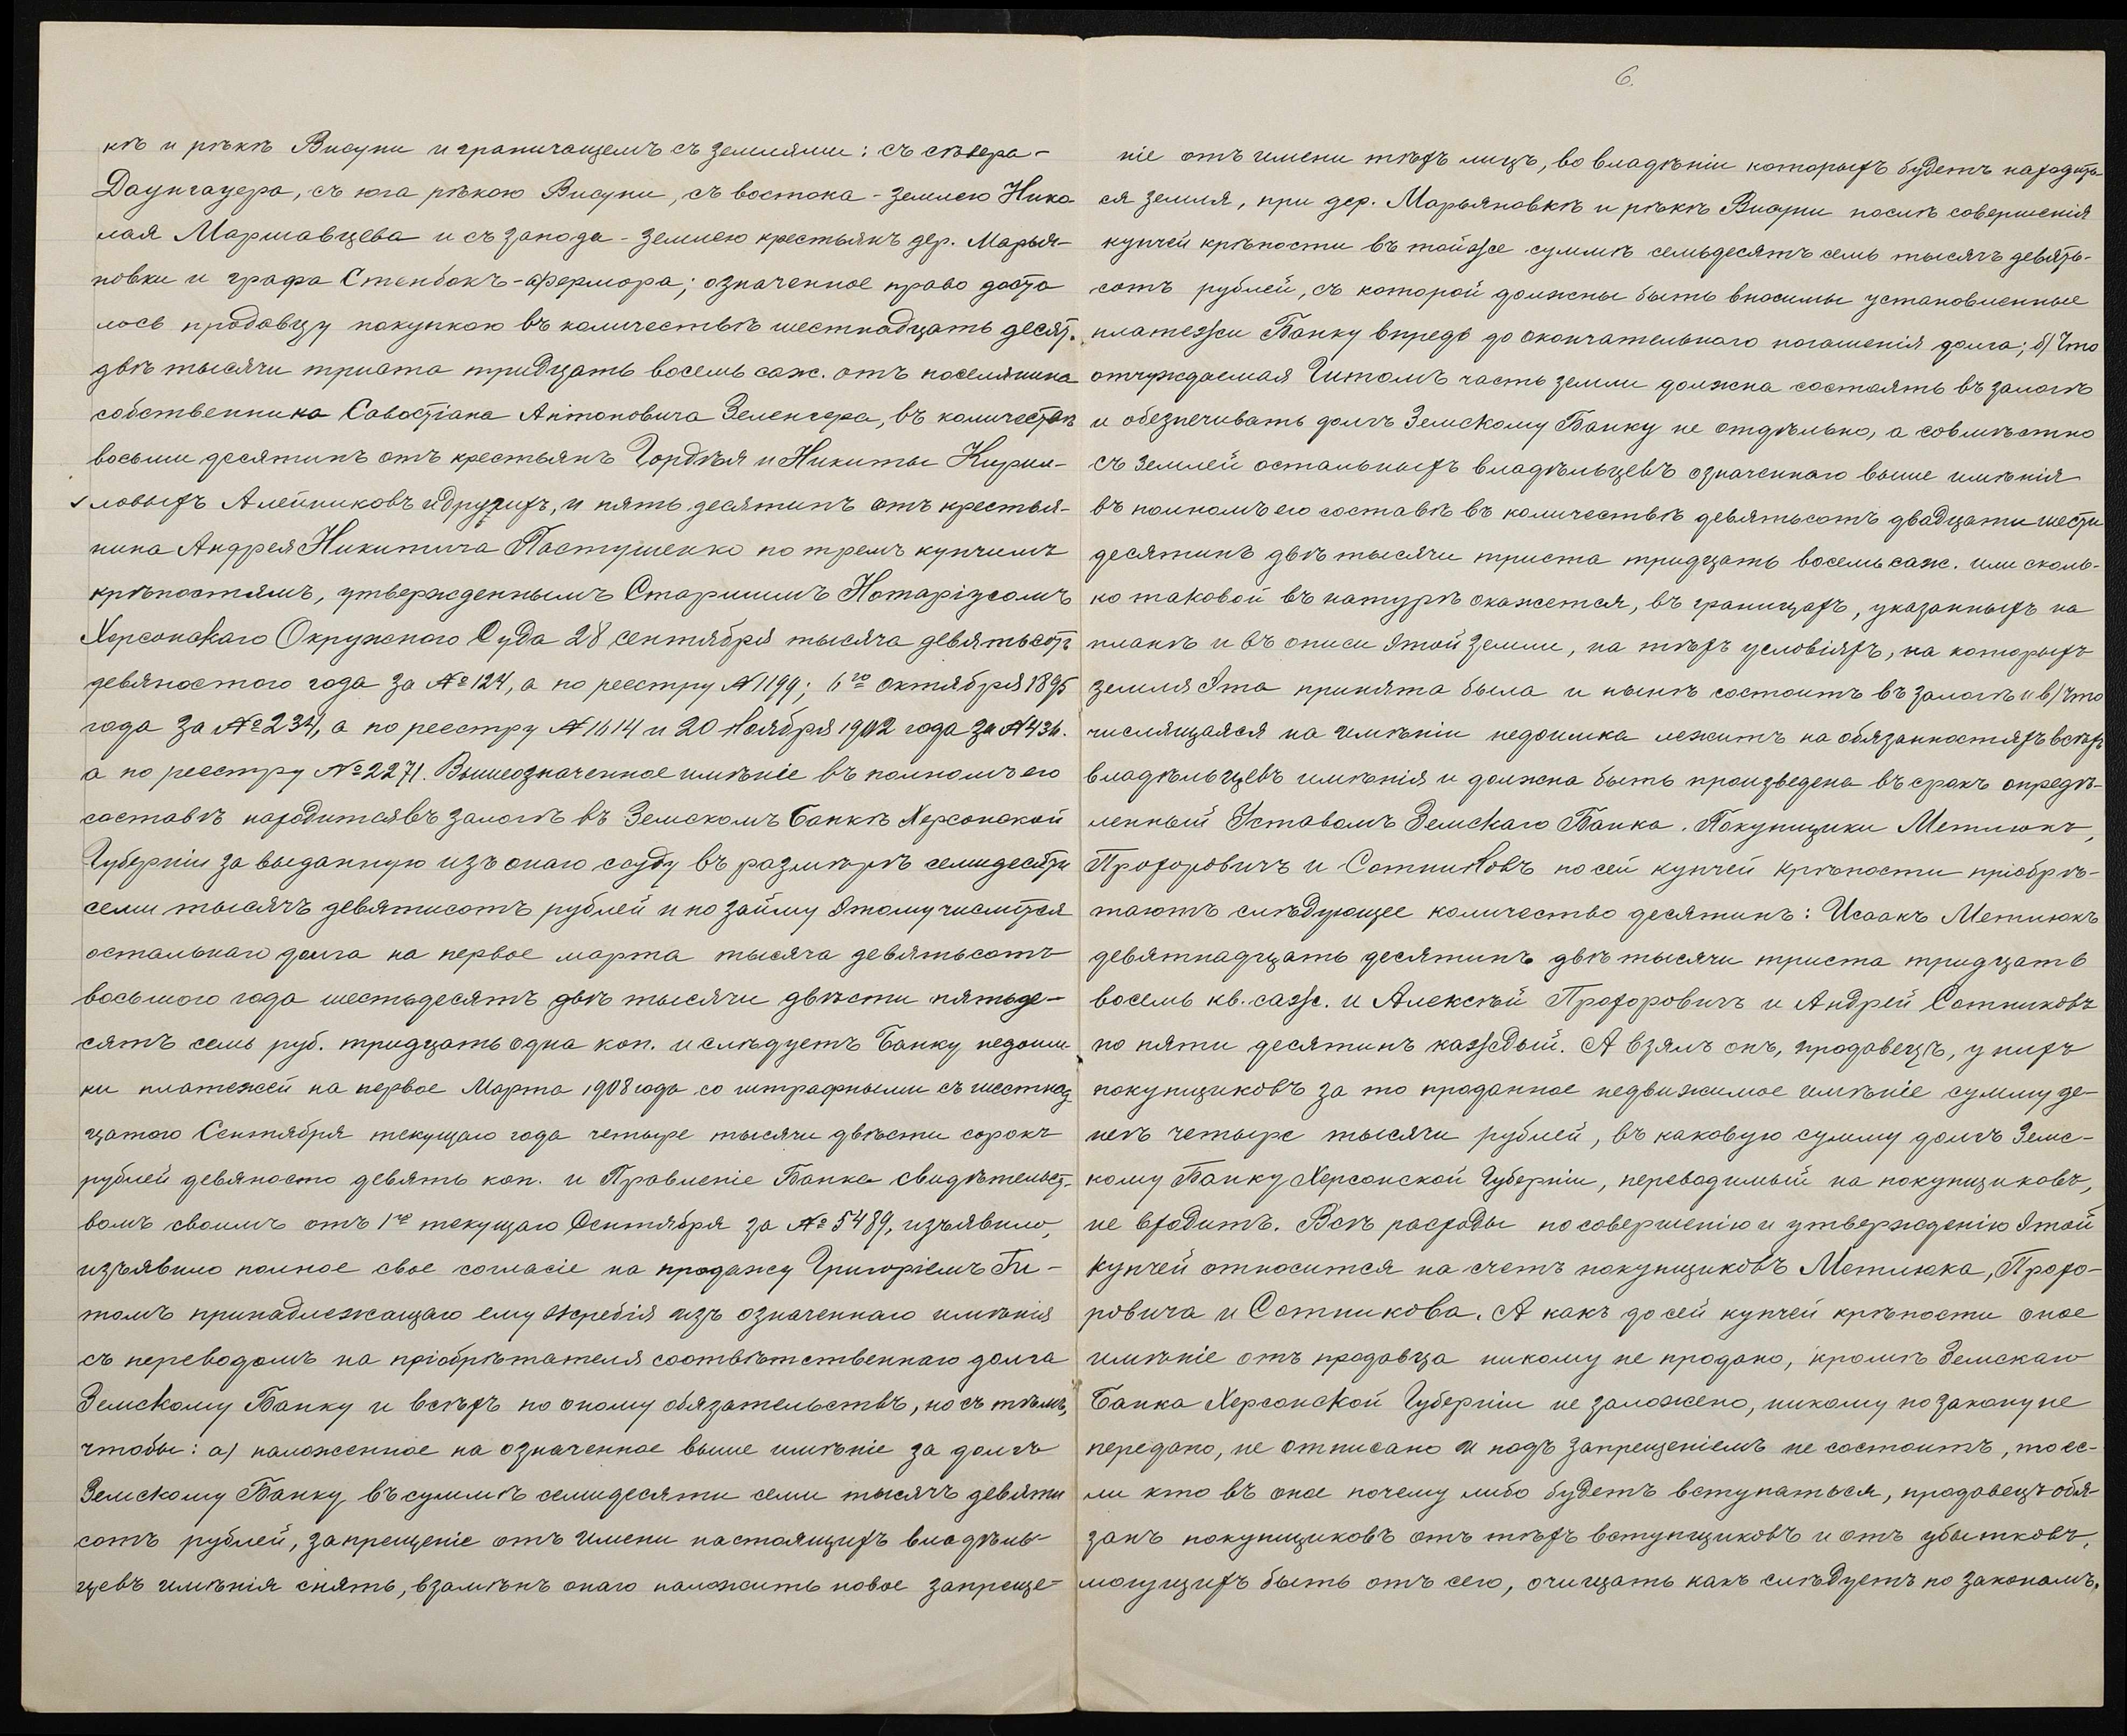 6.
кѣ и рѣкѣ Висуни и граничащемъ съ землями: съ сѣвера-
Даунгауера, съ юга рѣкою Висуни, съ востока - землею Нико-
лая Маршавцева и съ запада - землею крестьянъ дер. Марья-
новки и графа Стенбокъ-Фермора; означенное право доста
лось продавцу покупкою въ количествѣ шестнадцать десят.
двѣ тысячи триста тридцать восемь саж. отъ поселянина
собственника Савостiана Антоновича Зеленгера, въ количествѣ
восьми десятинъ отъ крестьянъ Гордѣя и Никиты Кирил-
ловыхъ Алейниковъ и другихъ, и пять десятинъ отъ крестья-
нина Андрея Никитича Пастушенко по тремъ купчимъ
крѣпостямъ, утвержденнымъ Старшимъ Нотарiусомъ
Херсонскаго Окружного Суда 28 сентября тысяча девятьсотъ
девяностого года за № 124, а по реестру № 1199; 6го октября 1895
года за № 234, а по реестру № 1614 и 20 Ноября 1902 года за № 436.
а по реестру № 2271. Вышеозначенное имѣнiе въ полномъ его
составѣ находится въ залогѣ въ Земскомъ Банкѣ Херсонской
Губернiи за выданную изъ онаго ссуду въ размѣрѣ семидесяти
семи тысячъ девятисотъ рублей и по займу этому числится
остальнаго долга на первое марта тысяча девятьсотъ
восьмого года шестьдесятъ двѣ тысячи двѣсти пятьде-
сятъ семь руб. тридцать одна коп. и слѣдуетъ Банку недоим
ки платежей на первое Марта 1908 года со штрафными съ шестнад
цатого Сентября текущаго года четыре тысячи двѣсти сорокъ
рублей девяносто девять коп. и Правленiе Банка свидѣтельст-
вомъ своимъ отъ 1го текущаго Сентября за № 5489, изъявило,
изъявило полное свое согласiе на продажу Григорiемъ Ги-
томъ принадлежащаго ему жребiя изъ означеннаго имѣнiя
съ переводомъ на прiобрѣтателя соотвѣтственнаго долга
Земскому Банку и всѣхъ по оному обязательствъ, но съ тѣмъ,
чтобы: а) наложенное на означенное выше имѣнiе за долгъ
Земскому Банку въ суммѣ семидесяти семи тысячъ девяти
сотъ рублей, запрещенiе отъ имени настоящихъ владѣль-
цевъ имѣнiя снять, взамѣнъ онаго наложить новое запреще-
нiе отъ имени тѣхъ лицъ, во владѣнiи которыхъ будетъ находить-
ся земля, при дер. Марьяновкѣ и рѣкѣ Висуни послѣ совершенiя
купчей крѣпости въ тойже суммѣ семьдесятъ семь тысячъ девять-
сотъ рублей, съ которой должны быть вносимы установленные
платежи Банку впредь до окончательнаго погашенiя долга; б) Что
отчуждаемая Гитомъ часть земли должна состоять въ залогѣ
и обезпечивать долгъ Земскому Банку не отдѣльно, а совмѣстно
съ землей остальныхъ владѣльцевъ означеннаго выше имѣнiя
въ полномъ его составѣ въ количествѣ девятьсотъ двадцати шести
десятинъ двѣ тысячи триста тридцать восемь саж. или сколь-
ко таковой въ натурѣ окажется, въ границахъ, указанныхъ на
планѣ и въ описи этой земли, на тѣхъ условiяхъ, на которыхъ
земля эта принята была и нынѣ состоитъ въ залогѣ и в) Что
числящаяся на имѣнiи недоимка лежитъ на обязанностяхъ всѣхъ
владѣльцевъ имѣнiя и должна быть произведена въ срокъ опредѣ-
ленный Уставомъ Земскаго Банка. Покупщики Метлюкъ,
Прохоровичъ и Сотниковъ по сей купчей крѣпости прiобрѣ-
таютъ слѣдующее количество десятинъ: Исаакъ Метлюкъ
девятнадцать десятинъ двѣ тысячи триста тридцать
восемь кв. саж. и Алексѣй Прохоровичъ и Андрей Сотниковъ
по пяти десятинъ каждый. А взялъ онъ, продавецъ, у нихъ
покупщиковъ за то проданное недвижимое имѣнiе сумму де-
негъ четыре тысячи рублей, въ каковую сумму долгъ Земс-
кому Банку Херсонской Губернiи, переводимый на покупщиковъ,
не входитъ. Всѣ расходы по совершенiю и утвержденiю этой
купчей относится на счетъ покупщиковъ Метлюка, Прохо-
ровича и Сотникова. А какъ до сей купчей крѣпости оное
имѣнiе отъ продавца никому не продано, кромѣ Земскаго
Банка Херсонской Губернiи не заложено, никому по закону не
передано, не отписано и подъ запрещенiемъ не состоитъ, то ес-
ли кто въ оное почему либо будетъ вступаться, продавецъ обя-
занъ покупщиковъ отъ тѣхъ вступщиковъ и отъ убытковъ,
могущихъ быть отъ сего, очищать какъ слѣдуетъ по законамъ.